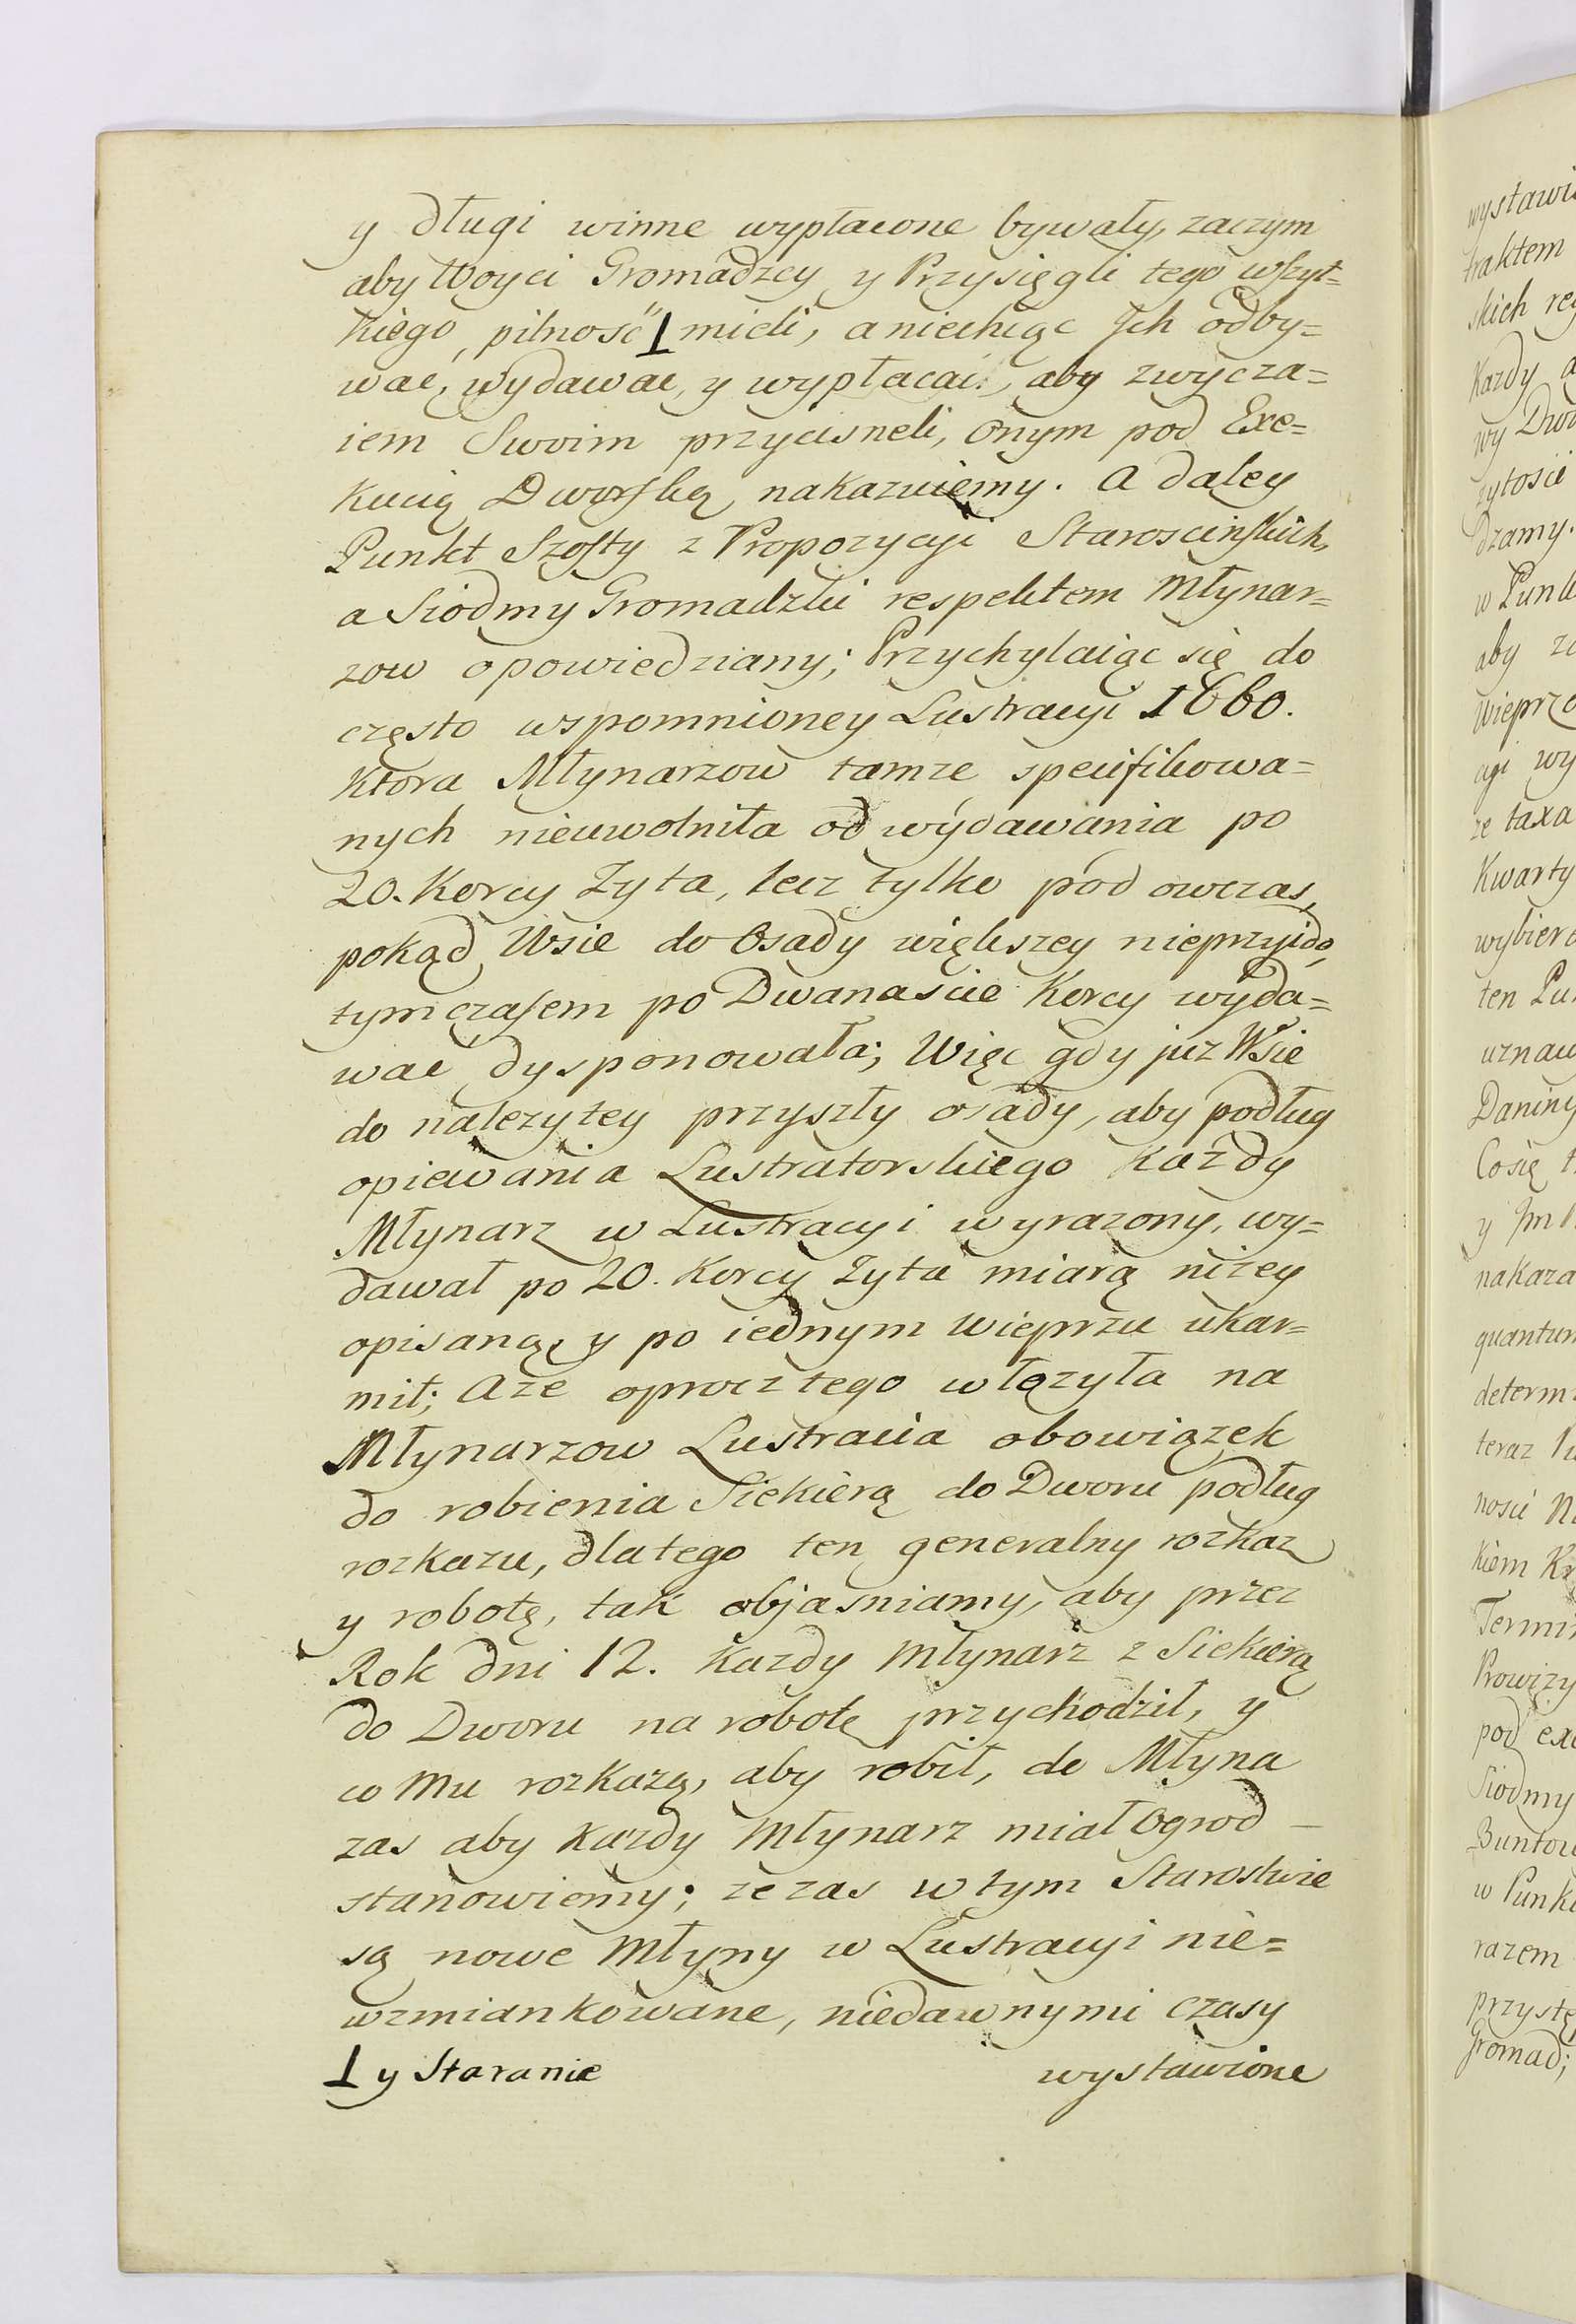 y długi winne wypłacone bywały, zaczym
aby Woyci Gromadzcy y Przysięgli tego wszyt=
kiego, pilność ⊥ mieli, a niechcąc Ich odby=
wac, wydawac, y wypłacać, aby zwycza=
iem Swoim przycisneli, Onym pod Exe=
kucią Dworską nakazuiemy. A daley
Punkt Szosty z Propozycyi Staroscinskich,
a Siodmy Gromadzki respektem Młynar=
zow opowiedziany; Przychylaiąc się do
często wspomnioney Lustracyi 1660.
ktora Młynarzow tamze specifikowa=
nych nieuwolniła od wydawania po
20. Korcy Zyta, lecz tylko pod owczas,
pokąd Wsie do Osady większey nieprzyidą,
tymczasem po Dwanascie Korcy wyda=
wac dysponowała; Więc gdy juz Wsie
do nalezytey przyszły osady, aby podług
opiewania Lustratorskiego kazdy
Młynarz w Lustracyi wyrazony, wy=
dawał po 20. Korcy Zyta miarą nizey
opisaną, y po iednym Wieprzu ukar=
mił; A ze oprocz tego włozyła na
Młynarzow Lustracia obowiązek
do robienia Siekierą do Dworu podług
rozkazu, dlatego ten generalny rozkaz
y robotę, tak objasniamy, aby przez
Rok dni 12. kazdy Młynarz z Siekierą
do Dworu na robotę przychodził, y
co Mu rozkazą, aby robił, do Młyna
zas aby kazdy Młynarz miał Ogrod –
stanowiemy; ze zas w tym Starostwie
są nowe Młyny w Lustracyi nie=
wzmiankowane, niedawnymi czasy
⊥ y Staranie wystawione
traktem
skich
Kazdy
wy
dzamy.
w
aby
ze taxa
Kwarty
ten
Daniny
Cosię
y
teraz
kiem
pod
Siodmy
w
razem
Gromad;